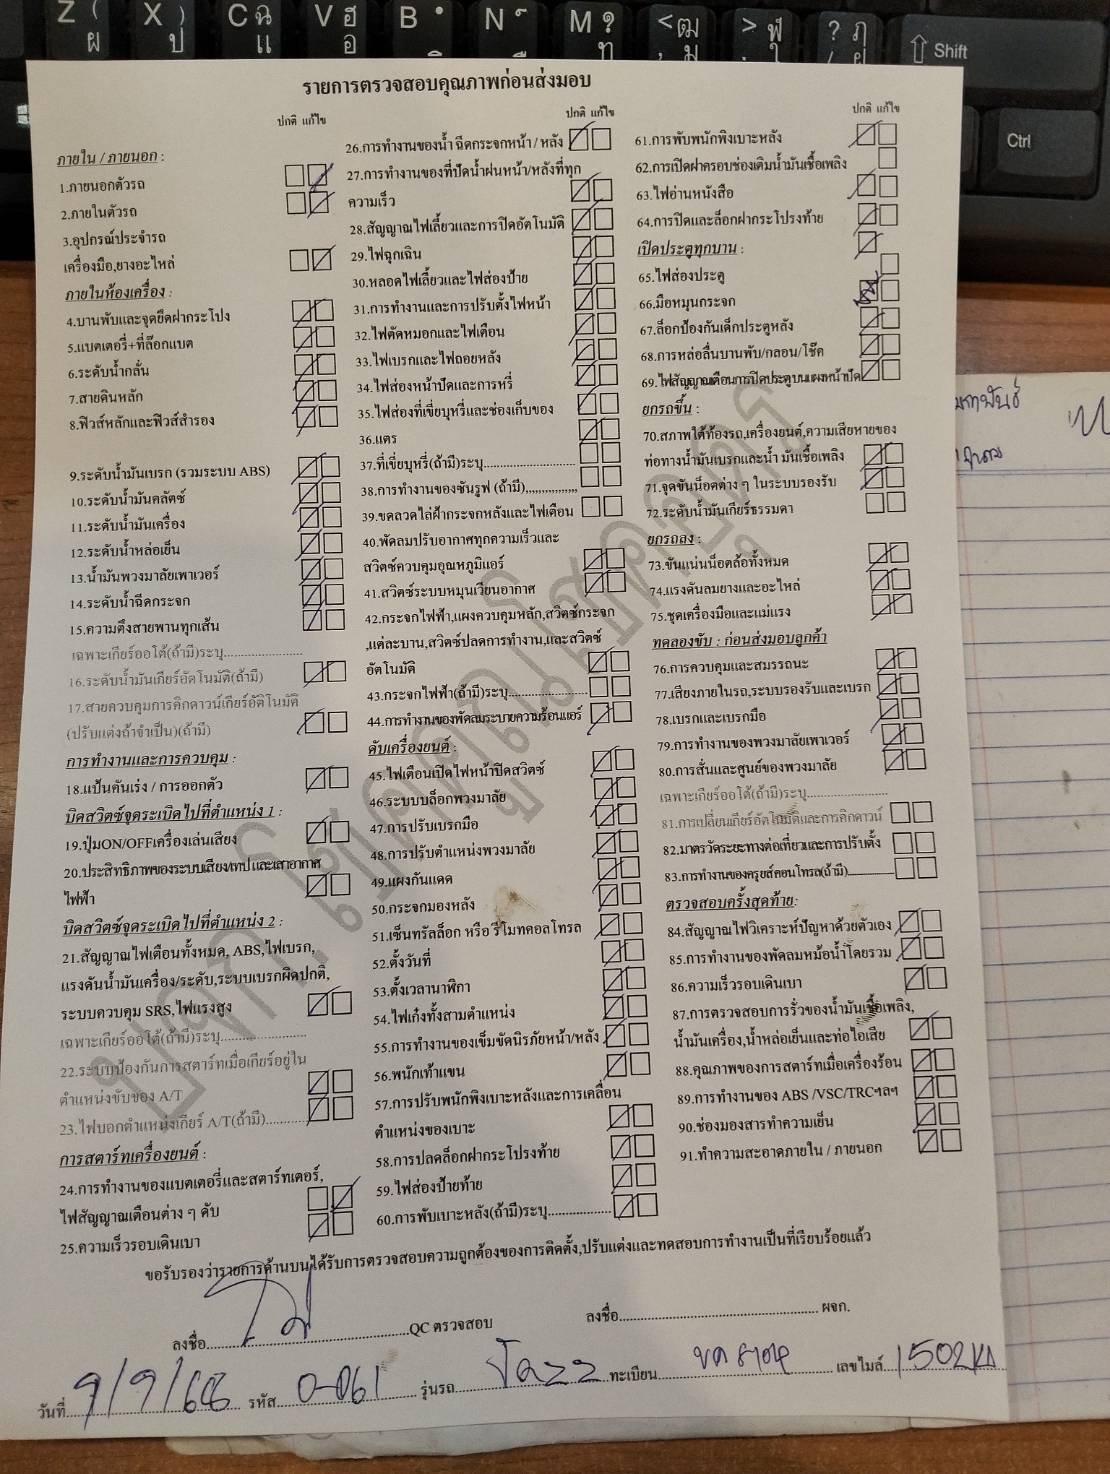 Z ( ผ
X ) ป
C ฉ แ
V ฮ อ
B
N
M ?
< ฒ ม
> ฬ ใ
? ฦ / ฝ
Shift
Ctrl
รายการตรวจสอบคุณภาพก่อนส่งมอบ
ปกติ แก้ไข
ภายใน / ภายนอก :
1.ภายนอกตัวรถ
2.ภายในตัวรถ
3.อุปกรณ์ประจำรถ
เครื่องมือ,ยางอะไหล่
ภายในห้องเครื่อง :
4.บานพับและจุดยึดฝากระโปง
5.แบตเตอรี่+ที่ล๊อกแบต
6.ระดับน้ำกลั่น
7.สายดินหลัก
8.ฟิวส์หลักและฟิวส์สำรอง
9.ระดับน้ำมันเบรก (รวมระบบ ABS)
10.ระดับน้ำมันคลัตซ์
11.ระดับน้ำมันเครื่อง
12.ระดับน้ำหล่อเย็น
13.น้ำมันพวงมาลัยเพาเวอร์
14.ระดับน้ำฉีดกระจก
15.ความตึงสายพานทุกเส้น
เฉพาะเกียร์ออโต้(ถ้ามี)ระบุ....................
16.ระดับน้ำมันเกียร์อัตโนมัติ(ถ้ามี)
17.สายควบคุมการคิกดาวน์เกียร์อัติโนมัติ
(ปรับแต่งถ้าจำเป็น)(ถ้ามี)
การทำงานและการควบคุม :
18.แป้นคันเร่ง / การออกตัว
บิดสวิตซ์จุดระเบิดไปที่ตำแหน่ง 1 :
19.ปุ่มON/OFFเครื่องเล่นเสียง
20.ประสิทธิภาพของระบบเสียง/เทป และเสาอากาศ
ไฟฟ้า
บิดสวิตซ์จุดระเบิดไปที่ตำแหน่ง 2 :
21.สัญญาณไฟเตือนทั้งหมด, ABS,ไฟเบรก,
แรงดันน้ำมันเครื่อง/ระดับ,ระบบเบรกผิดปกติ,
ระบบควบคุม SRS,ไฟแรงสูง
เฉพาะเกียร์ออโต้(ถ้ามี)ระบุ......................
22.ระบบป้องกันการสตาร์ทเมื่อเกียร์อยู่ใน
ตำแหน่งขับของ A/T
23.ไฟบอกตำแหน่งเกียร์ A/T(ถ้ามี)..........
การสตาร์ทเครื่องยนต์ :
24.การทำงานของแบตเตอรี่และสตาร์ทเตอร์,
ไฟสัญญาณเตือนต่าง ๆ ดับ
25.ความเร็วรอบเดินเบา
ปกติ แก้ไข
26.การทำงานของน้ำ ฉีดกระจกหน้า / หลัง
27.การทำงานของที่ปัดน้ำฝนหน้า/หลังที่ทุก
ความเร็ว
28.สัญญาณไฟเลี้ยวและการปิดอัตโนมัติ
29.ไฟฉุกเฉิน
30.หลอดไฟเลี้ยวและไฟส่องป้าย
31.การทำงานและการปรับตั้งไฟหน้า
32.ไฟตัดหมอกและไฟเตือน
33.ไฟเบรกและไฟถอยหลัง
34.ไฟส่องหน้าปัดและการหรี่
35.ไฟส่องที่เขี่ยบุหรี่และช่องเก็บของ
36.แตร
37.ที่เขี่ยบุหรี่(ถ้ามี)ระบุ........................
38.การทำงานของซันรูฟ (ถ้ามี)................
39.ขดลวดไล่ฝ้ากระจกหลังและไฟเตือน
40.พัดลมปรับอากาศทุกความเร็วและ
สวิตซ์ควบคุมอุณหภูมิแอร์
41.สวิตซ์ระบบหมุนเวียนอากาศ
42.กระจกไฟฟ้า,แผงควบคุมหลัก,สวิตซ์กระจก
,แต่ละบาน,สวิตซ์ปลดการทำงาน,และสวิตซ์
อัตโนมัติ
43.กระจกไฟฟ้า(ถ้ามี)ระบุ.....................
44.การทำงานของพัดลมระบายความร้อนแอร์
ดับเครื่องยนต์ :
45.ไฟเตือนเปิดไฟหน้าปิดสวิตซ์
46.ระบบบล็อกพวงมาลัย
47.การปรับเบรกมือ
48.การปรับตำแหน่งพวงมาลัย
49.แผงกันแดด
50.กระจกมองหลัง
51.เซ็นทรัลล็อก หรือ รีโมทคอลโทรล
52.ตั้งวันที่
53.ตั้งเวลานาฬิกา
54.ไฟเก๋งทั้งสามตำแหน่ง
55.การทำงานของเข็มขัดนิรภัยหน้า/หลัง
56.พนักเท้าแขน
57.การปรับพนักพิงเบาะหลังและการเคลื่อน
ตำแหน่งของเบาะ
58.การปลดล็อกฝากระโปรงท้าย
59.ไฟส่องป้ายท้าย
60.การพับเบาะหลัง(ถ้ามี)ระบุ................
ปกติ แก้ไข
61.การพับพนักพิงเบาะหลัง
62.การเปิดฝาครอบช่องเติมน้ำมันเชื้อเพลิง
63.ไฟอ่านหนังสือ
64.การปิดและล็อกฝากระโปรงท้าย
เปิดประตูทุกบาน :
65.ไฟส่องประตู
66.มือหมุนกระจก
67.ล็อกป้องกันเด็กประตูหลัง
68.การหล่อลื่นบานพับ/กลอน/โช๊ค
69.ไฟสัญญาณเตือนการปิดประตูบนแผงหน้าปัด
ยกรถขึ้น :
70.สภาพใต้ท้องรถ,เครื่องยนต์,ความเสียหายของ
ท่อทางน้ำมันเบรกและน้ำ มันเชื้อเพลิง
71.จุดขันน็อตต่าง ๆ ในระบบรองรับ
72.ระดับน้ำมันเกียร์ธรรมดา
ยกรถลง :
73.ขันแน่นน็อตล้อทั้งหมด
74.แรงดันลมยางและอะไหล่
75.ชุดเครื่องมือและแม่แรง
ทดลองขับ : ก่อนส่งมอบลูกค้า
76.การควบคุมและสมรรถนะ
77.เสียงภายในรถ,ระบบรองรับและเบรก
78.เบรกและเบรกมือ
79.การทำงานของพวงมาลัยเพาเวอร์
80.การสั่นและศูนย์ของพวงมาลัย
เฉพาะเกียร์ออโต้(ถ้ามี)ระบุ....................
81.การเปลี่ยนเกียร์อัตโนมัติและการคิกดาวน์
82.มาตรวัดระยะทางต่อเที่ยวและการปรับตั้ง
83.การทำงานของครุยส์คอนโทรล(ถ้ามี)..............
ตรวจสอบครั้งสุดท้าย:
84.สัญญาณไฟวิเคราะห์ปัญหาด้วยตัวเอง
85.การทำงานของพัดลมหม้อน้ำโดยรวม
86.ความเร็วรอบเดินเบา
87.การตรวจสอบการรั่วของน้ำมันเชื้อเพลิง,
น้ำมันเครื่อง,น้ำหล่อเย็นและท่อไอเสีย
88.คุณภาพของการสตาร์ทเมื่อเครื่องร้อน
89.การทำงานของ ABS /VSC/TRCฯลฯ
90.ช่องมองสารทำความเย็น
91.ทำความสะอาดภายใน / ภายนอก
ขอรับรองว่ารายการด้านบนได้รับการตรวจสอบความถูกต้องของการติดตั้ง,ปรับแต่งและทดสอบการทำงานเป็นที่เรียบร้อยแล้ว
ลงชื่อ..........QC ตรวจสอบ
ลงชื่อ.......... ผจก.
วันที่ 9/9/68 รหัส 0-061 รุ่นรถ ทะเบียน เลขไมล์